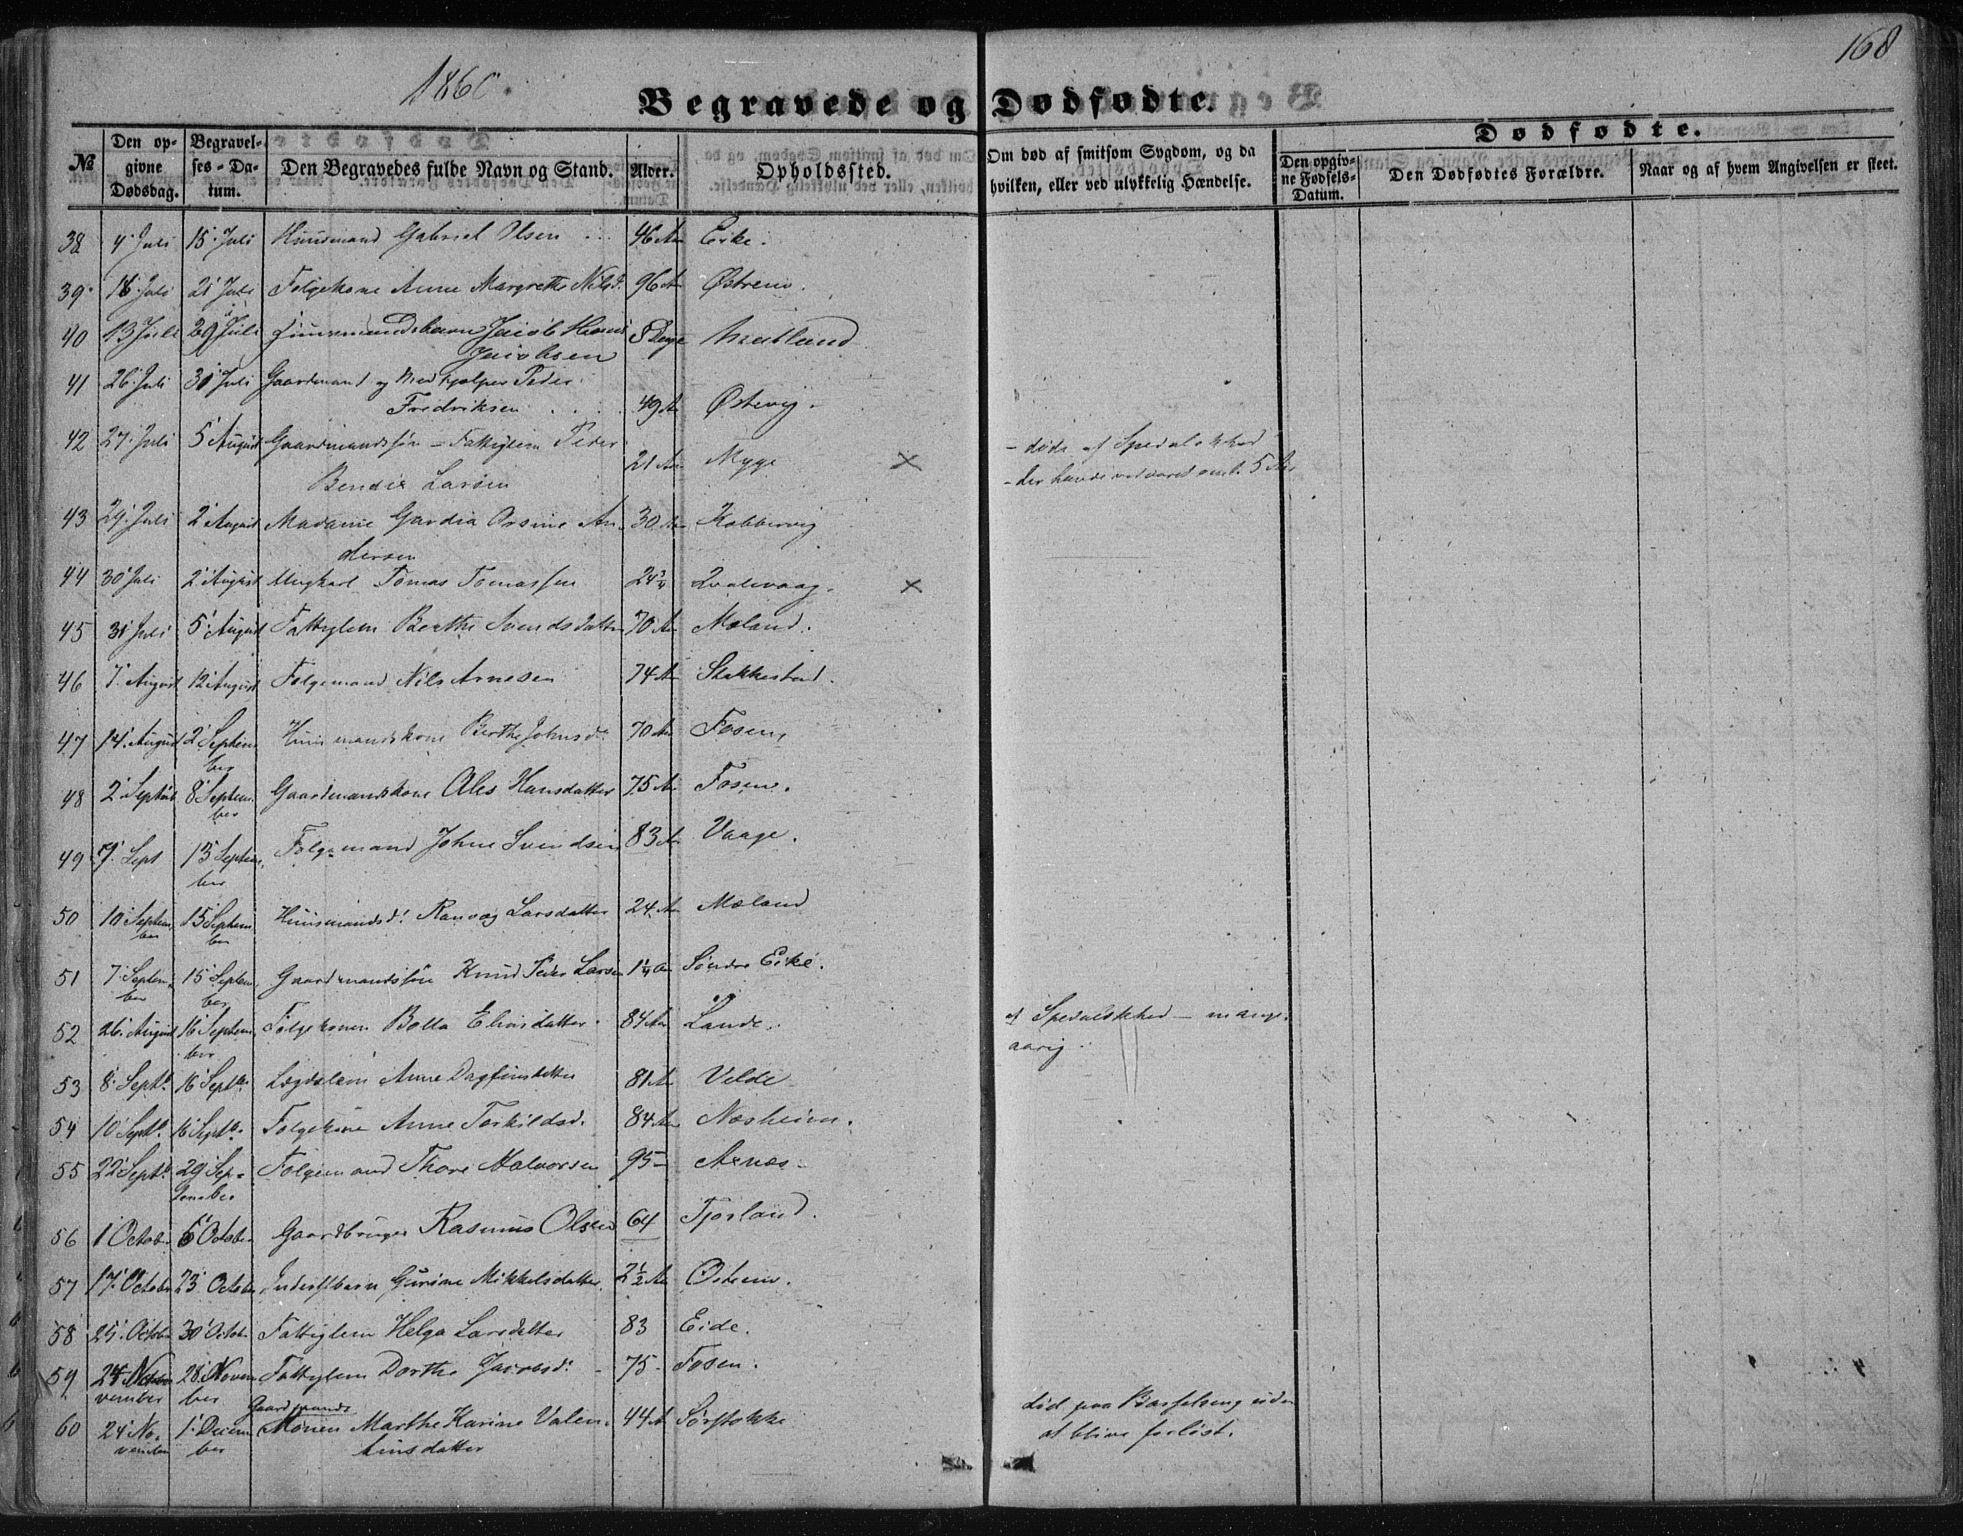 168
1860.
Begravede og Dødfødte.
№
Den opgivne Dødsdag.
Begravelses-Datum.
Den Begravedes fulde Navn og Stand.
Alder.
Opholdssted.
Om død af smitsom Sygdom, og da hvilken, eller ved ulykkelig Hændelse.
Dødfødte.
Den opgivne Fødsels-Datum.
Den Dødfødtes Forældre.
Naar og af hvem Angivelsen er skeet.
38 4 Juli 15 Juli Huusmand Gabriel Olsen 46 Aar Eike.
39 18 Juli 21 Juli Folgekone Anne Margrethe Nilsd. 96 Aar Østrem.
40 13 Juli 29 Juli Huusmandsbarn Jacob Hans Jacobsen 8 Dage
41 26 Juli 30 Juli Gaardmand og Medhjelper Peder
Fredriksen 49 Aar Østevig.
42 27 Juli 5 August Gaardmandssøn – Fattiglem Peder
Bendix Larsen 21 Aar Myge × – døde af Spedalskhed
– der havde vedvaret omt. 5 Aar
43 29 Juli 2 August Madame Gardia Orsine An
dersen 30 Aar Kobbervig
44 30 Juli 2 August Ungkarl Tomas Tomassen 24 3/4 Qvalevaag. ×
45 31 Juli 5 August Fattiglem Berthe Svendsdatter 70 Aar Mæland.
46 7 August 12 August Folgemand Nils Arnesen 74 Aar Stakkestad.
47 14 August 2 Septem
ber Huusmandskone Berthe Johnsd. 70 Aar Fosen,
48 2 Septbr 8 Septem
ber Gaardmandskone Ales Hansdatter 75 Aar Fosen.
49 7 Sept 15 Septem
ber Folgemand John Svendsen 83 Aar Vaage.
50 10 Septem
ber 15 Septem
ber Huusmandsd. Ranveg Larsdatter 24 Aar Mæland
51 7 Septem
ber 15 Septem
ber Gaardmandssøn Knud Peder Larsen 1 1/4 Aar Søndre Eike.
52 26 August 16 Septem
ber Folgekonen Bolla Eliasdatter 84 Aar Lande. af Spedalskhed – mange
aarig.
53 8 Septb. 16 Septbr Lægdslem Anne Dagfinsdatter 81 Aar Velde
54 10 Septb. 16 Septbr Folgekone Anne Torkildsd. 84 Aar Næsheim.
55 22 Septb. 29 Sep-
tember Folgemand Thore Halvorsen 95 – Arnæs
56 1 Octob 6 October Gaardbruger Rasmus Olsen 64 Tjøsland.
57 17 October 23 October Inderstbarn Gurine Mikkelsdatter 2 1/2 Aar Østrem.
58 25 Octob 30 Octob Fattiglem Helga Larsdatter 83 Eide.
59 24 No
vember 28 Novem
ber Fattiglem Dorthe Jacobsd. – 75 – Fosen.
60 24 No-
vember 1 Decem
ber Gaardmands
Konen Marthe Karine Valen-
tinsdatter 44 A Sørstokke død paa Barselseng uden
at blive forløst.